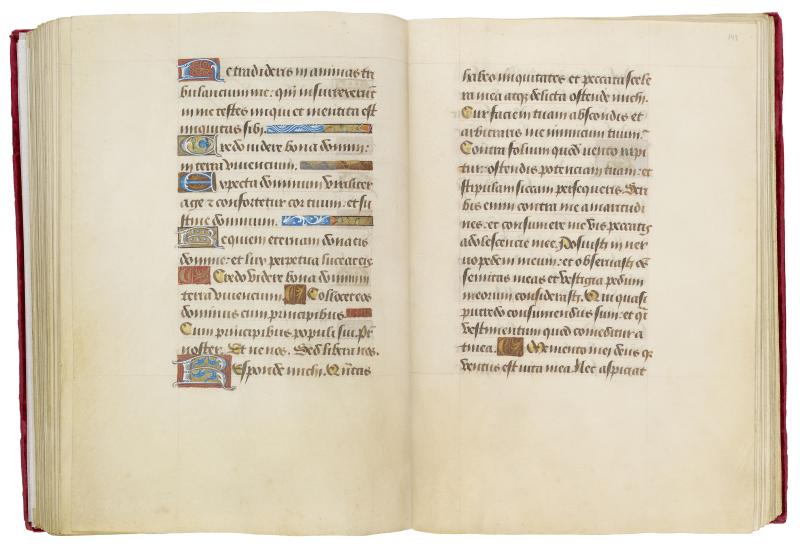 Ne tradideris in animas tri
bulancium me: qm̄ insurrexerūt
in me testes iniqui et mentita est
iniquitas sibi.
Credo videre bona domini:
in terra viventium.
Expecta dominum viriliter
age ⁊ confortetur cor tuum: et su
stine dominum.
Requiem eternam dona eis
domine: et lux perpetua luceat eis
Credo videre bona domini in
terra viventium. Collocet eos
dominus cum principibus.
Cum principibus populi sui. Pr̄
noster. Et ne nos. Sed libera nos.
Responde michi. Quātas
143
habeo iniquitates et peccata scele
ra mea atqȝ delicta ostende michi.
Cur faciem tuam abscondis et
arbitraris me inimicum tuum.
Contra folium quod vento rapi
tur: ostendis potenciam tuam: et
stipulam siccam persequeris. Scri
bis enim contra me amaritudi
nes: et consumere me vis peccatis
adolescencie mee. Posuisti in ner
vo pedem meum: et observasti oēs
semitas meas et vestigia pedum
meorum considerasti. Qui quasi
putredo consumendus sum: et qi
vestimentum quod comeditur a
tinea. Memento mei deus qr
ventus est vita mea. Nec aspiciat